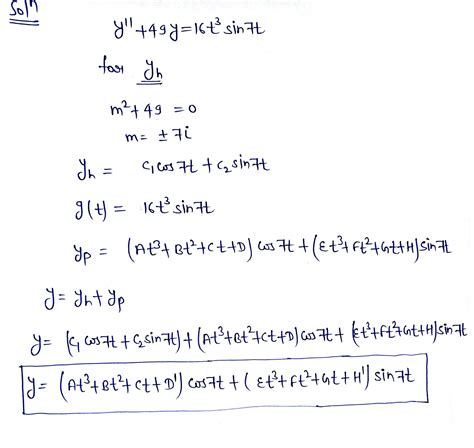 Soln
y'' + 49y = 16t³ sin7t
for y_h
m² + 49 = 0
m = ± 7i
y_h = c₁ cos7t + c₂ sin7t
g(t) = 16t³ sin7t
y_p = (At³+Bt²+Ct+D) cos7t + (Et³+Ft²+Gt+H) sin7t
y = y_h + y_p
y = (c₁ cos7t + c₂ sin7t) + (At³+Bt²+Ct+D) cos7t + (Et³+Ft²+Gt+H) sin7t
y = (At³+Bt²+Ct+D') cos7t + (Et³+Ft²+Gt+H') sin7t